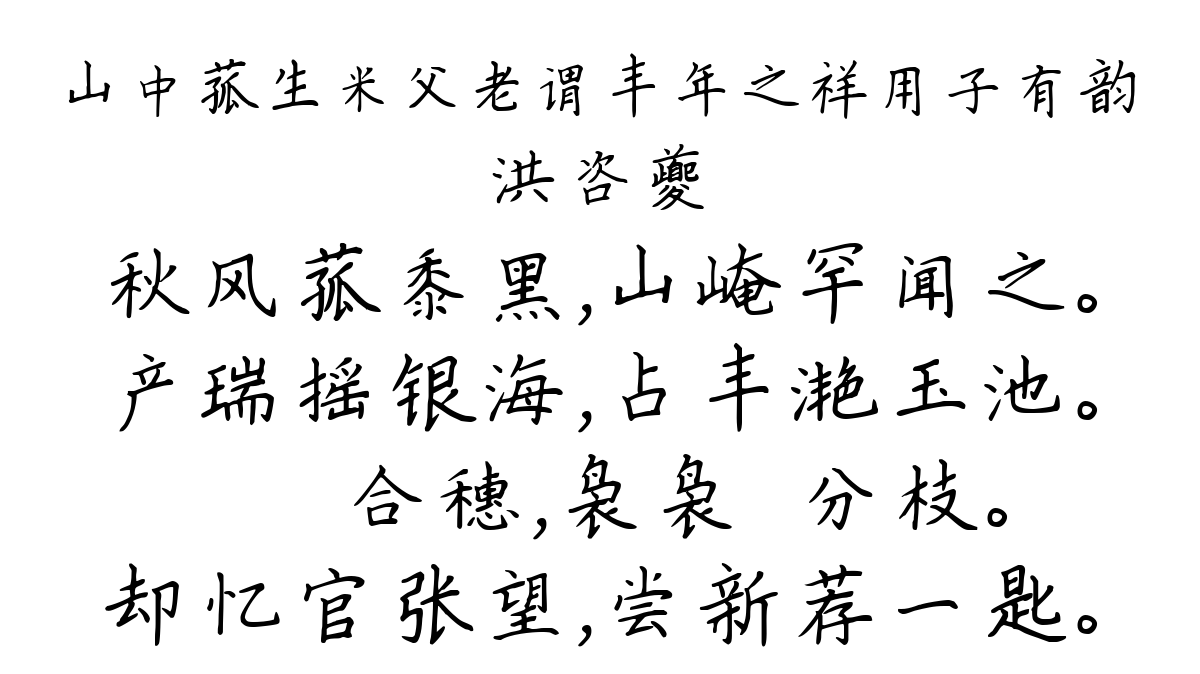 山中菰生米父老谓丰年之祥用子有韵
洪咨夔
秋风菰黍黑,山崦罕闻之。
产瑞摇银海,占丰滟玉池。
合穗,袅袅 分枝。
却忆官张望,尝新荐一匙。